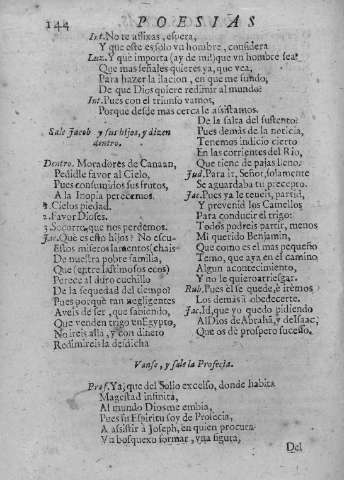 144 POESIAS
Int. No te aflixas, espera,
Y que este es solo vn hombre, considera
Luz. Y que importa (ay de mi!) que vn hombre sea?
Que mas señales quieres ya, que vea,
Para hazer la ilacion, en que me fundo,
De que Dios quiere redimir al mundo?
Int. Pues con el triunfo vamos,
Porque desde mas cerca le assistamos.
Sale Jacob y sus hijos, y dizen
dentro.
Dentro. Moradores de Canaan,
Pedidle favor al Cielo,
Pues consumidos sus frutos,
A la Inopia perecemos.
Cielos piedad.
2. Favor Dioses.
3. Socorro, que nos perdemos.
Jac. Què es esto hijos? No escu-
Estos miseros lamentos (chais
De nuestra pobre familia,
Que (entre lastimosos ecos)
Perece al duro cuchillo
De la sequedad del tiempo?
Pues porquè tan negligentes
Aveis de ser, que sabiendo,
Que venden trigo en Egypto,
No ireis allà, y con dinero
Redimireis la desdicha
De la falta del sustento?
Pues demàs de la noticia,
Tenemos indicio cierto
En las corrientes del Rio,
Que tiene de pajas lleno.
Jud. Para ir, Señor, solamente
Se aguardaba tu precepto.
Jac. Pues ya le teneis, partid,
Y prevenid los Camellos
Para conducir el trigo:
Todos podreis partir, menos
Mi querido Benjamin,
Que como es el mas pequeño
Temo, que aya en el camino
Algun acontecimiento,
Y no le quiero arriesgar.
Rub. Pues el se quede, è iremos
Los demàs à obedecerte.
Jac. Id, que yo quedo pidiendo
Al Dios de Abrahã, y de Isaac,
Que os de prospero sucesso.
Vanse, y sale la Profecia.
Prof. Ya, que del Solio excelso, donde habita
Magestad infinita,
Al mundo Dios me embia,
Pues su Espiritu soy de Profecia,
A assistir à Joseph, en quien procura
Vn bosquexo formar, vna figura,
Del